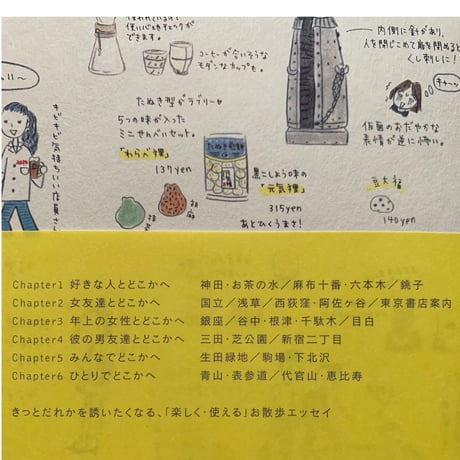 使いに心をチェックが
できます。
コーヒーが合いそうな
モダンなカップも。
内側に針があり、
人を閉じこめて扉を閉めると
くし刺しに!
キャーッ
仮面のおだやかな
表情が逆に怖い。
たぬき型がラブリー
5つの味が入った
ミニせんべいセット。
「わらべ狸」
137yen
たぬき煎餅
黒こしょう味の
「元気狸」
315yen
あとひくうまさ!
胡麻
豆大福
140yen
キビキビ気持ちいい店員さん
Chapter1 好きな人とどこかへ 神田・お茶の水/麻布十番・六本木/銚子
Chapter2 女友達とどこかへ 国立/浅草/西荻窪・阿佐ヶ谷/東京書店案内
Chapter3 年上の女性とどこかへ 銀座/谷中・根津・千駄木/目白
Chapter4 彼の男友達とどこかへ 三田・芝公園/新宿二丁目
Chapter5 みんなでどこかへ 生田緑地/駒場・下北沢
Chapter6 ひとりでどこかへ 青山・表参道/代官山・恵比寿
きっとだれかを誘いたくなる、「楽しく・使える」お散歩エッセイ